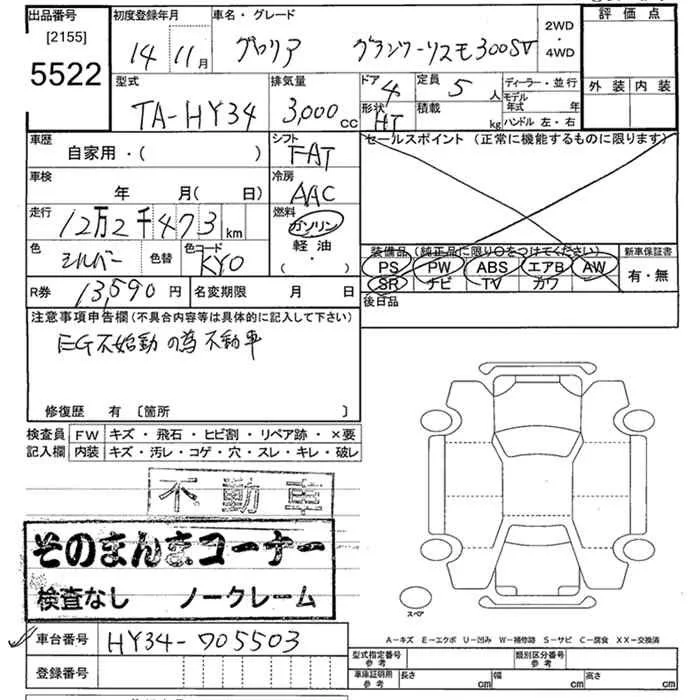 出品番号 初度登録年月 車名・グレード 2WD・4WD 評価点
[2155]
5522
14 11月 グロリア グランツーリスモ300SV
型式 排気量 ドア 定員 ディーラー・並行 外装 内装
TA-HY34 3,000cc 4 5人 モデル年式 年
形状 積載 ハンドル 左・右
HT kg
車歴 シフト セールスポイント (正常に機能するものに限ります)
自家用・( ) FAT
車検 冷房
年 月( 日) AAC
走行 燃料
12万2千473km ガソリン
色 色替 色コード 軽油
シルバー KY0 (・)
装備品 (純正品に限り○をつけてください) 新車保証書
PS PW ABS エアB AW 有・無
SR ナビ TV カワ
R券 13,590円 名変期限 月 日 後日品
注意事項申告欄 (不具合内容等は具体的に記入して下さい)
EG不始動の為不動車
修復歴 有 〔箇所 〕
検査員 FW キズ・飛石・ヒビ割・リペア跡・×要
記入欄 内装 キズ・汚レ・コゲ・穴・スレ・キレ・破レ
不動車
そのまんまコーナー
検査なし ノークレーム
スペア
A-キズ E-エクボ U-凹み W-補修跡 S-サビ C-腐食 XX-交換済
車台番号 HY34-705503
登録番号
型式指定番号 参考 類別区分番号 参考
車庫証明用 参考 長さ cm 幅 cm 高さ cm